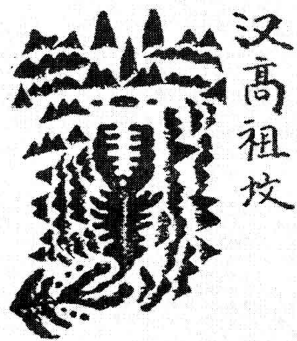 汉高祖坟